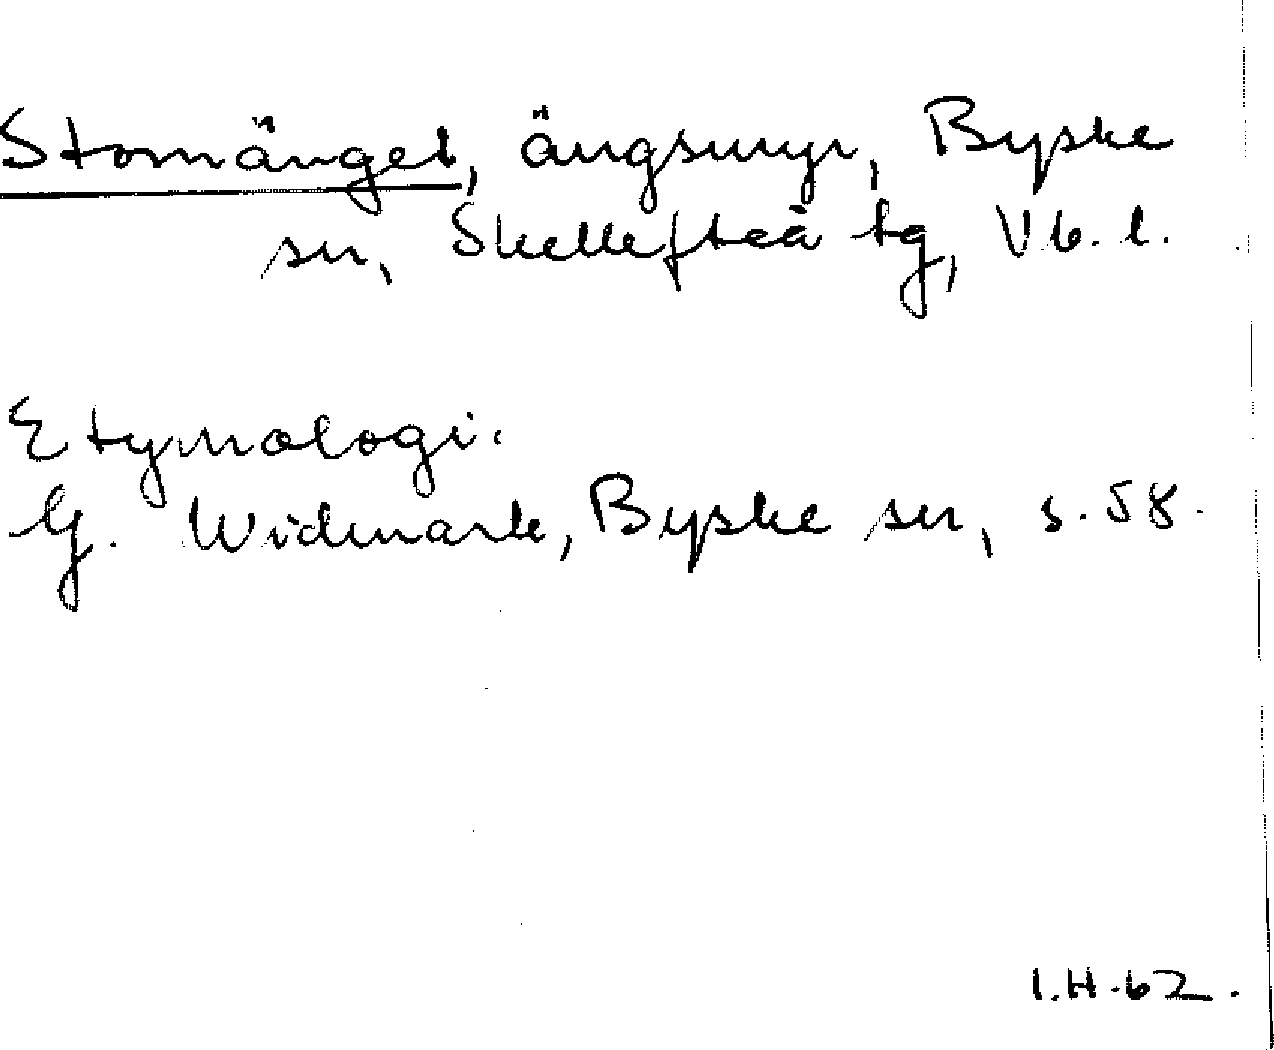 Stomänget, ängsmyr, Byske
sn, Skellefteå tg, Vb. l.
Etymologi.
G. Widmark, Byske sn, s. 58.
I.H. 62.